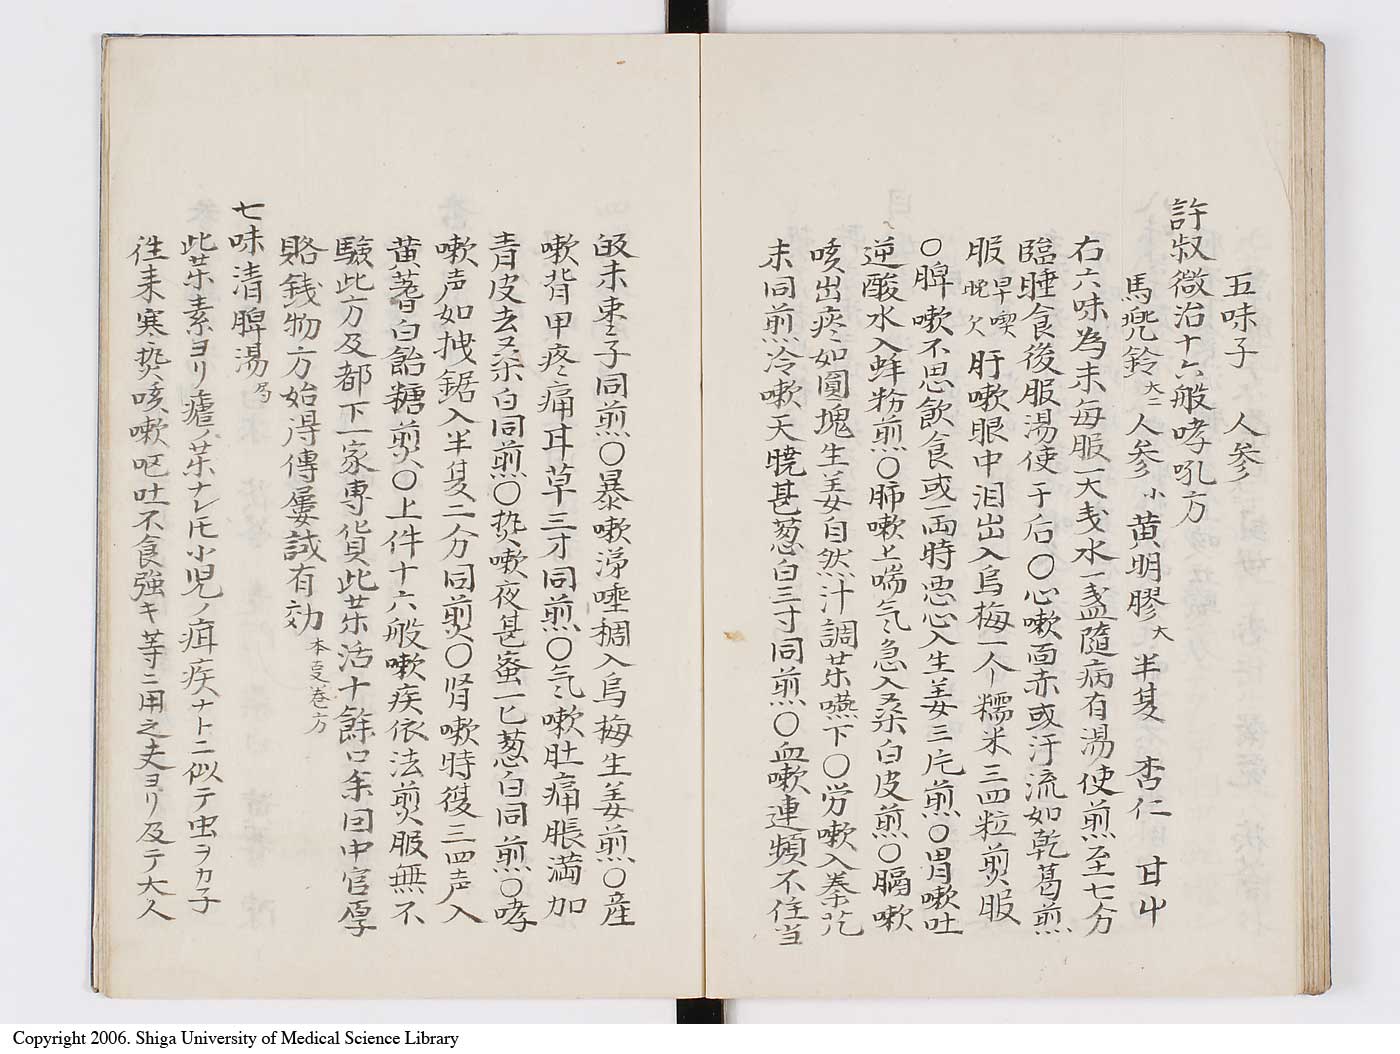 五味子　人参
許叔微治十六般哮吼方
馬兜鈴大二　人参小　黄明膠大　半夏　杏仁　甘艸
右六味為末毎服一大戔水一盞隨病有湯使煎至七分
臨睡食後服湯使于后〇心嗽面赤或汗流如乾葛煎
服早喫晩欠　肝嗽眼中泪出入烏梅一个糯米三四粒煎服
〇脾嗽不思飲食或一両時悪心入生姜三片煎〇胃嗽吐
逆酸水入蚌粉煎〇肺嗽上喘气急入桒白皮煎〇膈嗽
咳出疼如圓塊生姜自然汁調茱嚥下〇労嗽入秦芃
末同煎冷嗽天暁甚葱白三寸同煎〇血嗽連頻不住当
皈末棗子同煎〇暴嗽涕唾稠入烏梅生姜煎〇産
嗽背甲疼痛耳草三寸同煎〇气嗽肚痛脹満加
青皮去桒白同煎〇㷫嗽夜甚蜜一匕葱白同煎〇哮
嗽声如拽鋸入半夏二分同煎〇肾嗽時復三四声入
黄蓍白飴糖煎〇上件十六般嗽疾依法煎服無不
験此方及都下一家専貨此茱活十餘口年田中官厚
賂銭物方始得傳屢試有効
七味清脾湯
此茱素ヨリ瘧ノ茱ナレ𪜈小児ノ疳疾ナトニ似テ虫ヲカ子
往来寒㷫咳嗽嘔吐不食強キ等ニ用之夫ヨリ及テ大人
Copyright 2006. Shiga University of Medical Science Library